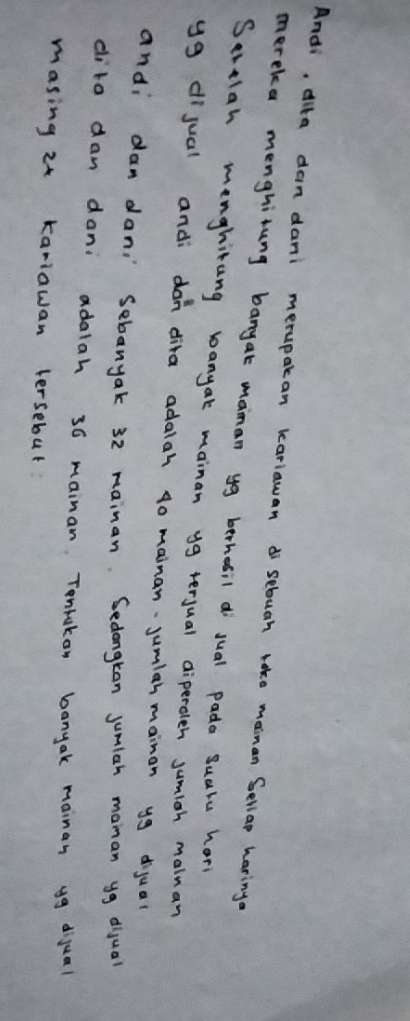 Andi, dita dan dani merupakan kariawan di sebuah toko mainan Setiap harinya
mereka menghitung banyak mainan yg berhasil di jual pada suatu hari
Setelah menghitung banyak mainan yg terjual diperoleh jumlah mainan
yg dijual andi dan dita adalah 40 mainan. jumlah mainan yg dijual
andi dan dani sebanyak 32 mainan. Sedangkan jumlah mainan yg dijual
dita dan dani adalah 36 mainan. Tentukan banyak mainan yg dijual
masing 2x kariawan tersebut :